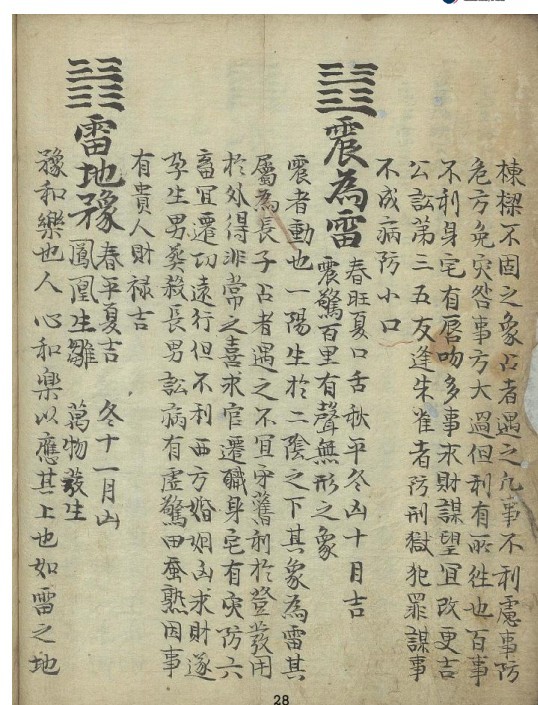 棟樑不固之象占者遇之凡事不利慮事防
危方免災咎事方大過但利有所往也百事
不利身宅有唇吻多事求財謀望宜改更吉
公訟第三五友逢朱雀者防刑獄犯罪謀事
不成病防小口
震為雷
春旺夏口舌秋平冬凶十月吉
震驚百里有聲無形之象
震者動也一陽生於二陰之下其象為雷其
屬為長子占者遇之不宜守舊利於登發用
於外得非常之喜求官遷職身宅有災防六
畜宜遷功遠行但不利西方婚姻凶求財遂
孕生男葬殺長男訟病有虛驚田蚕熟因事
有貴人財禄吉
雷地豫
春平夏吉 冬十一月凶
鳳凰生雛 萬物發生
豫和樂也人心和樂以應其上也如雷之地
28